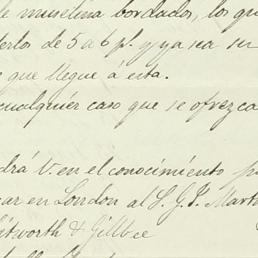 de muselina bordados, los qu
de 5 a 6 pl. y ya sea su
que llegue á esta.
cualquier caso que se ofrezca
drá V. en el conocimiento p
car en London al S. G. J. Mart
hitworth & Gillbee